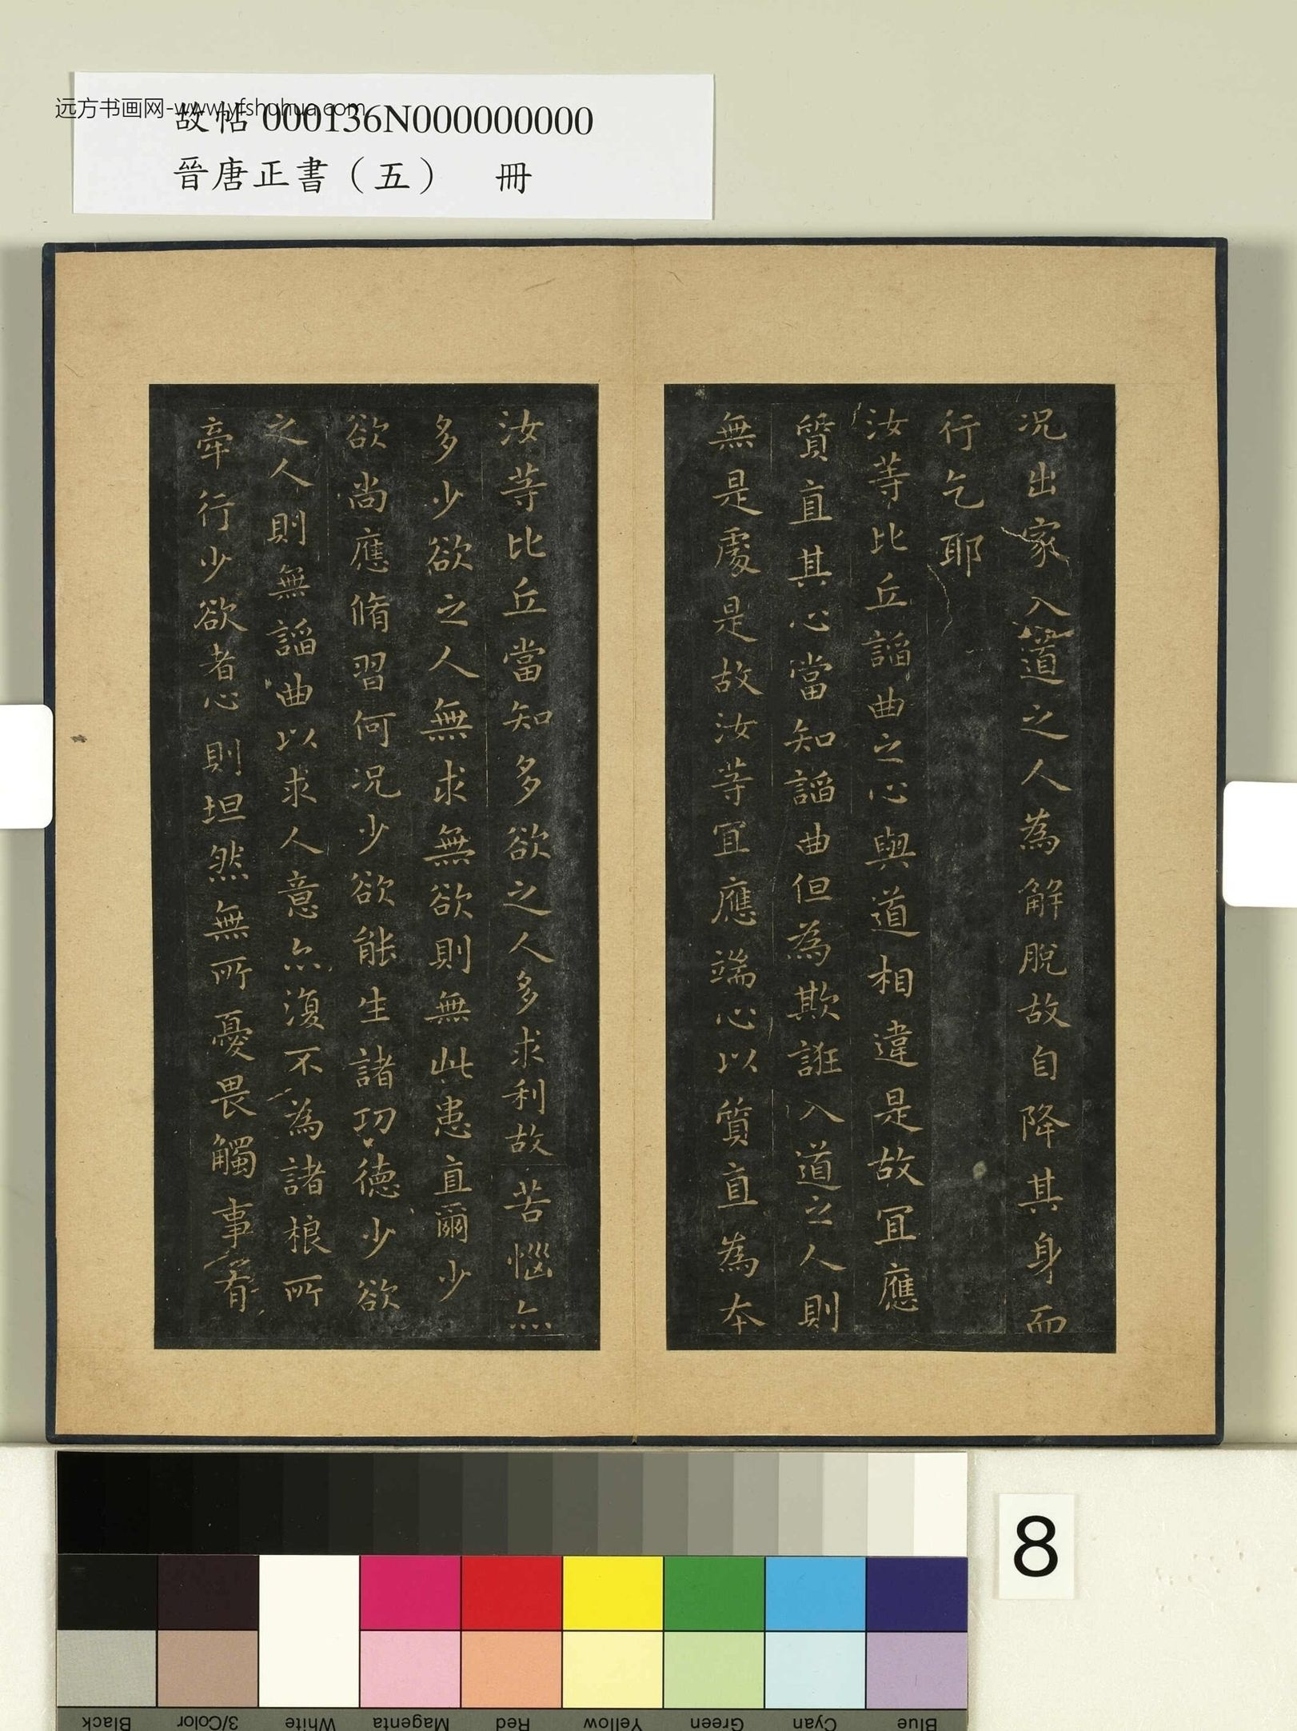 远方书画网-www.yfshuhua.com
故帖 000136N000000000
晉唐正書（五） 冊
况出家入道之人為解脫故自降其身而
行乞耶
汝等比丘諂曲之心與道相違是故宜應
質直其心當知諂曲但為欺誑入道之人則
無是處是故汝等宜應端心以質直為本
汝等比丘當知多欲之人多求利故苦惱亦
多少欲之人無求無欲則無此患直爾少
欲尚應脩習何况少欲能生諸功德少欲
之人則無諂曲以求人意亦復不為諸根所
牽行少欲者心則坦然無所憂畏觸事有
8
Black
3/Color
White
Magenta
Red
Yellow
Green
Cyan
Blue